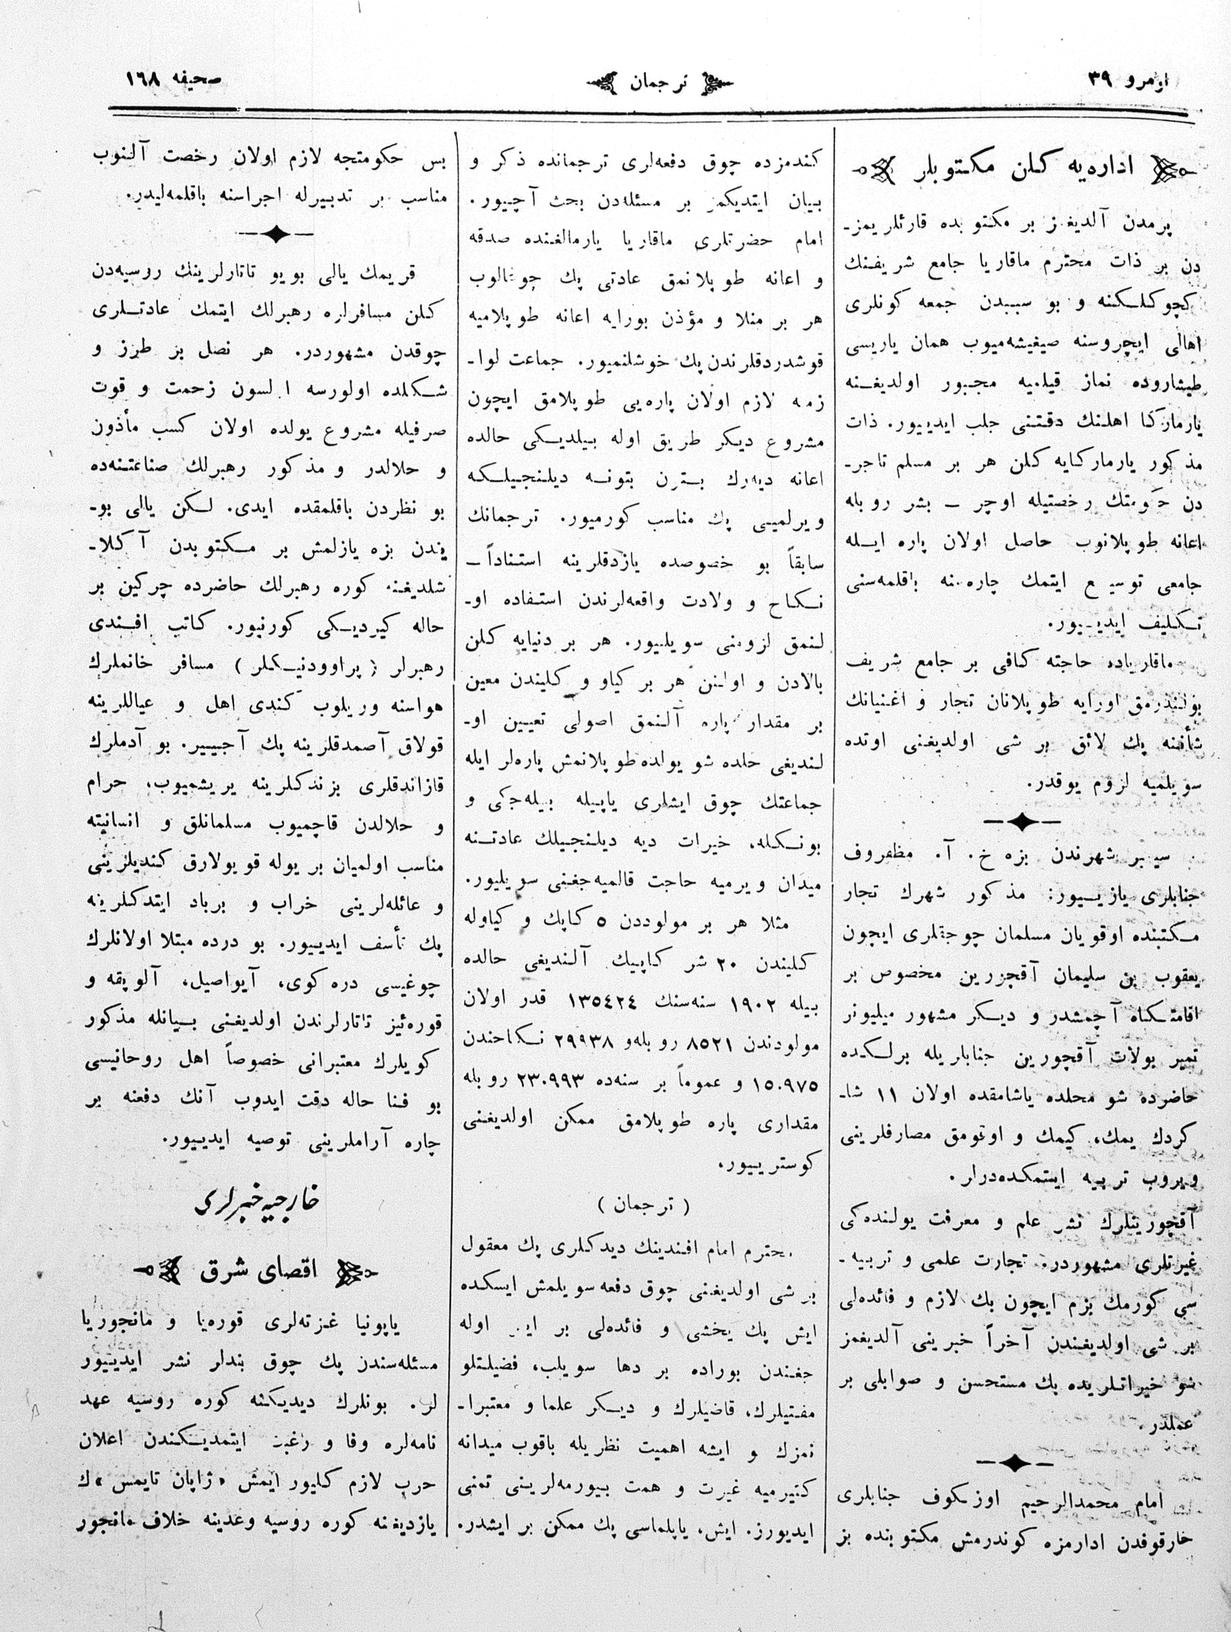 نومرو ٣٩
ترجمان
صحيفه ١٦٨
اداره‌يه كلن مكتوبلر
پرمدن آلديغمز بر مكتوبده قارئلريمز-
دن بر ذات محترم ماقاريا جامع شريفنك
كچوكلكنه و بو سببدن جمعه كونلرى
اهالى ايچروسنه صيغيشه‌ميوب همان ياريسى
طيشاروده نماز قيلميه مجبور اولديغنه
يارماركا اهلنك دقتنى جلب ايدييور. ذات
مذكور يارماركايه كلن هر بر مسلم تاجر-
دن حكومتك رخصتيله اوچر — بشر روبله
اعانه طوپلانوب حاصل اولان پاره ايله
جامعى توسيع ايتمك چاره‌سنه باقلمه‌سنى
تكليف ايدييور.
ماقارياده حاجته كافى بر جامع شريف
بولندرمق اورايه طوپلانان تجار و اغنيانك
شأننه پك لائق بر شى اولديغنى اوتده
سويلميه لزوم يوقدر.
سيمبر شهرندن بزه خ. آ. مظفروف
جنابلرى يازييور: مذكور شهرك تجار
مكتبنده اوقويان مسلمان چوجقلرى ايچون
يعقوب بن سليمان آقچورين مخصوص بر
اقامتكاه آچمشدر و ديكر مشهور ميليونر
تمير بولات آقچورين جنابلريله برلكده
حاضرده شو محلده ياشامقده اولان ١١ شا-
كردك يمك، كيمك و اوقومق مصارفلرينى
ويروب تربيه ايتمكده‌درلر.
آقچورينلرك نشر علم و معرفت يولنده‌كى
غيرتلرى مشهوردر. تجارت علمى و تربيه-
سى كورمك بزم ايچون پك لازم و فائده‌لى
بر شى اولديغندن آخراً خبرينى آلديغمز
شو خيراتلريده پك مستحسن و صوابلى بر
عملدر.
امام محمدالرحيم اوزبكوف جنابلرى
خارقوفدن ادارمزه كوندرمش مكتوبنده بز
كندمزده چوق دفعه‌لرى ترجمانده ذكر و
بيان ايتديكمز بر مسئله‌دن بحث آچييور.
امام حضرتلرى ماقاريا يارمالغنده صدقه
و اعانه طوپلانمق عادتى پك چوغالوب
هر بر منلا و مؤذن بورايه اعانه طوپلاميه
قوشدردقلرندن پك خوشلنميور. جماعت لوا-
زمه لازم اولان پاره‌يى طوپلامق ايچون
مشروع ديكر طريق اوله بيلديكى حالده
اعانه ديه‌رك بتون بتونه ديلنجيلكه
ويرلميى پك مناسب كورميور. ترجمانك
سابقاً بو خصوصده يازدقلرينه استناداً —
نكاح و ولادت واقعه‌لرندن استفاده او-
لنمق لزومنى سويلييور. هر بر دنيايه كلن
بالادن و اولنن هر بر كياو و كليندن معين
بر مقدار پاره آلنمق اصولى تعيين او-
لنديغى حلده شو يولده طوپلانمش پاره‌لر ايله
جماعتك چوق ايشلرى ياپيله بيله‌جكى و
بونكله، خيرات ديه ديلنجيلك عادتنه
ميدان ويرميه حاجت قالميه‌جغنى سويليور.
مثلا هر بر مولوددن ٥ كاپك و كياوله
كليندن ٢٠ شر كاپيك آلنديغى حالده
بيله ١٩٠٢ سنه‌سنك ١٣٥٤٢٤ قدر اولان
مولودندن ٨٥٢١ روبله‌و ٢٩٩٣٨ نكاحندن
١٥٠٩٧٥ و عموماً بر سنه‌ده ٢٣٠٩٩٣ روبله
مقدارى پاره طوپلامق ممكن اولديغنى
كوسترييور.
(ترجمان)
محترم امام افندينك ديدكلرى پك معقول
بر شى اولديغنى چوق دفعه سويلمش ايسكده
ايش پك يخشى و فائده‌لى بر ايش اوله
جغندن بوراده بر دها سويلب، فضيلتلو
مفتيلرك، قاضيلرك و ديكر علما و معتبرا-
نمزك و ايشه اهميت نظريله باقوب ميدانه
كتيرميه غيرت و همت بيورمه‌لرينى تمنى
ايديورز. ايش، ياپلماسى پك ممكن بر ايشدر.
بس حكومتجه لازم اولان رخصت آلنوب
مناسب بر تدبيرله اجراسنه باقلمه‌ليدر.
قريمك يالى بويو تاتارلرينك روسيه‌دن
كلن مسافرلره رهبرلك ايتمك عادتلرى
چوقدن مشهوردر. هر نصل بر طرز و
شكلده اولورسه اولسون زحمت و قوت
صرفيله مشروع يولده اولان كسب مأذون
و حلالدر و مذكور رهبرلك صناعتنه‌ده
بو نظردن باقلمقده ايدى. لكن يالى بو-
يندن بزه يازلمش بر مكتوبدن آكلا-
شلديغنه كوره رهبرلك حاضرده چركين بر
حاله كيرديكى كورنيور. كاتب افندى
رهبرلر (پراوودنيكلر) مسافر خانملرك
هواسنه وريلوب كندى اهل و عياللرينه
قولاق آصمدقلرينه پك آجييير. بو آدملرك
قازاندقلرى بزندكلرينه يريشميوب، حرام
و حلالدن قاچميوب مسلمانلق و انسانيته
مناسب اولميان بر يوله قويولارق كنديلرينى
و عائله‌لرينى خراب و برباد ايتدكلرينه
پك تأسف ايدييور. بو درده مبتلا اولانلرك
چوغيسى دره‌كوى، آيواصيل، آلوپقه و
قوره‌ئيز تاتارلرندن اولديغنى بيانله مذكور
كويلرك معتبرانى خصوصاً اهل روحانيسى
بو فنا حاله دقت ايدوب آنك دفعنه بر
چاره آراملرينى توصيه ايدييور.
خارجيه خبرلرى
اقصاى شرق
ياپونيا غزته‌لرى قوره‌يا و مانجوريا
مسئله‌سندن پك چوق بندلر نشر ايدييور
لر. بونلرك ديديكنه كوره روسيه عهد
نامه‌لره وفا و رغبت ايتمديكندن اعلان
حرب لازم كليور ايمش «ژاپان تايمس»ك
يازديغنه كوره روسيه وعدينه خلاف مانجور